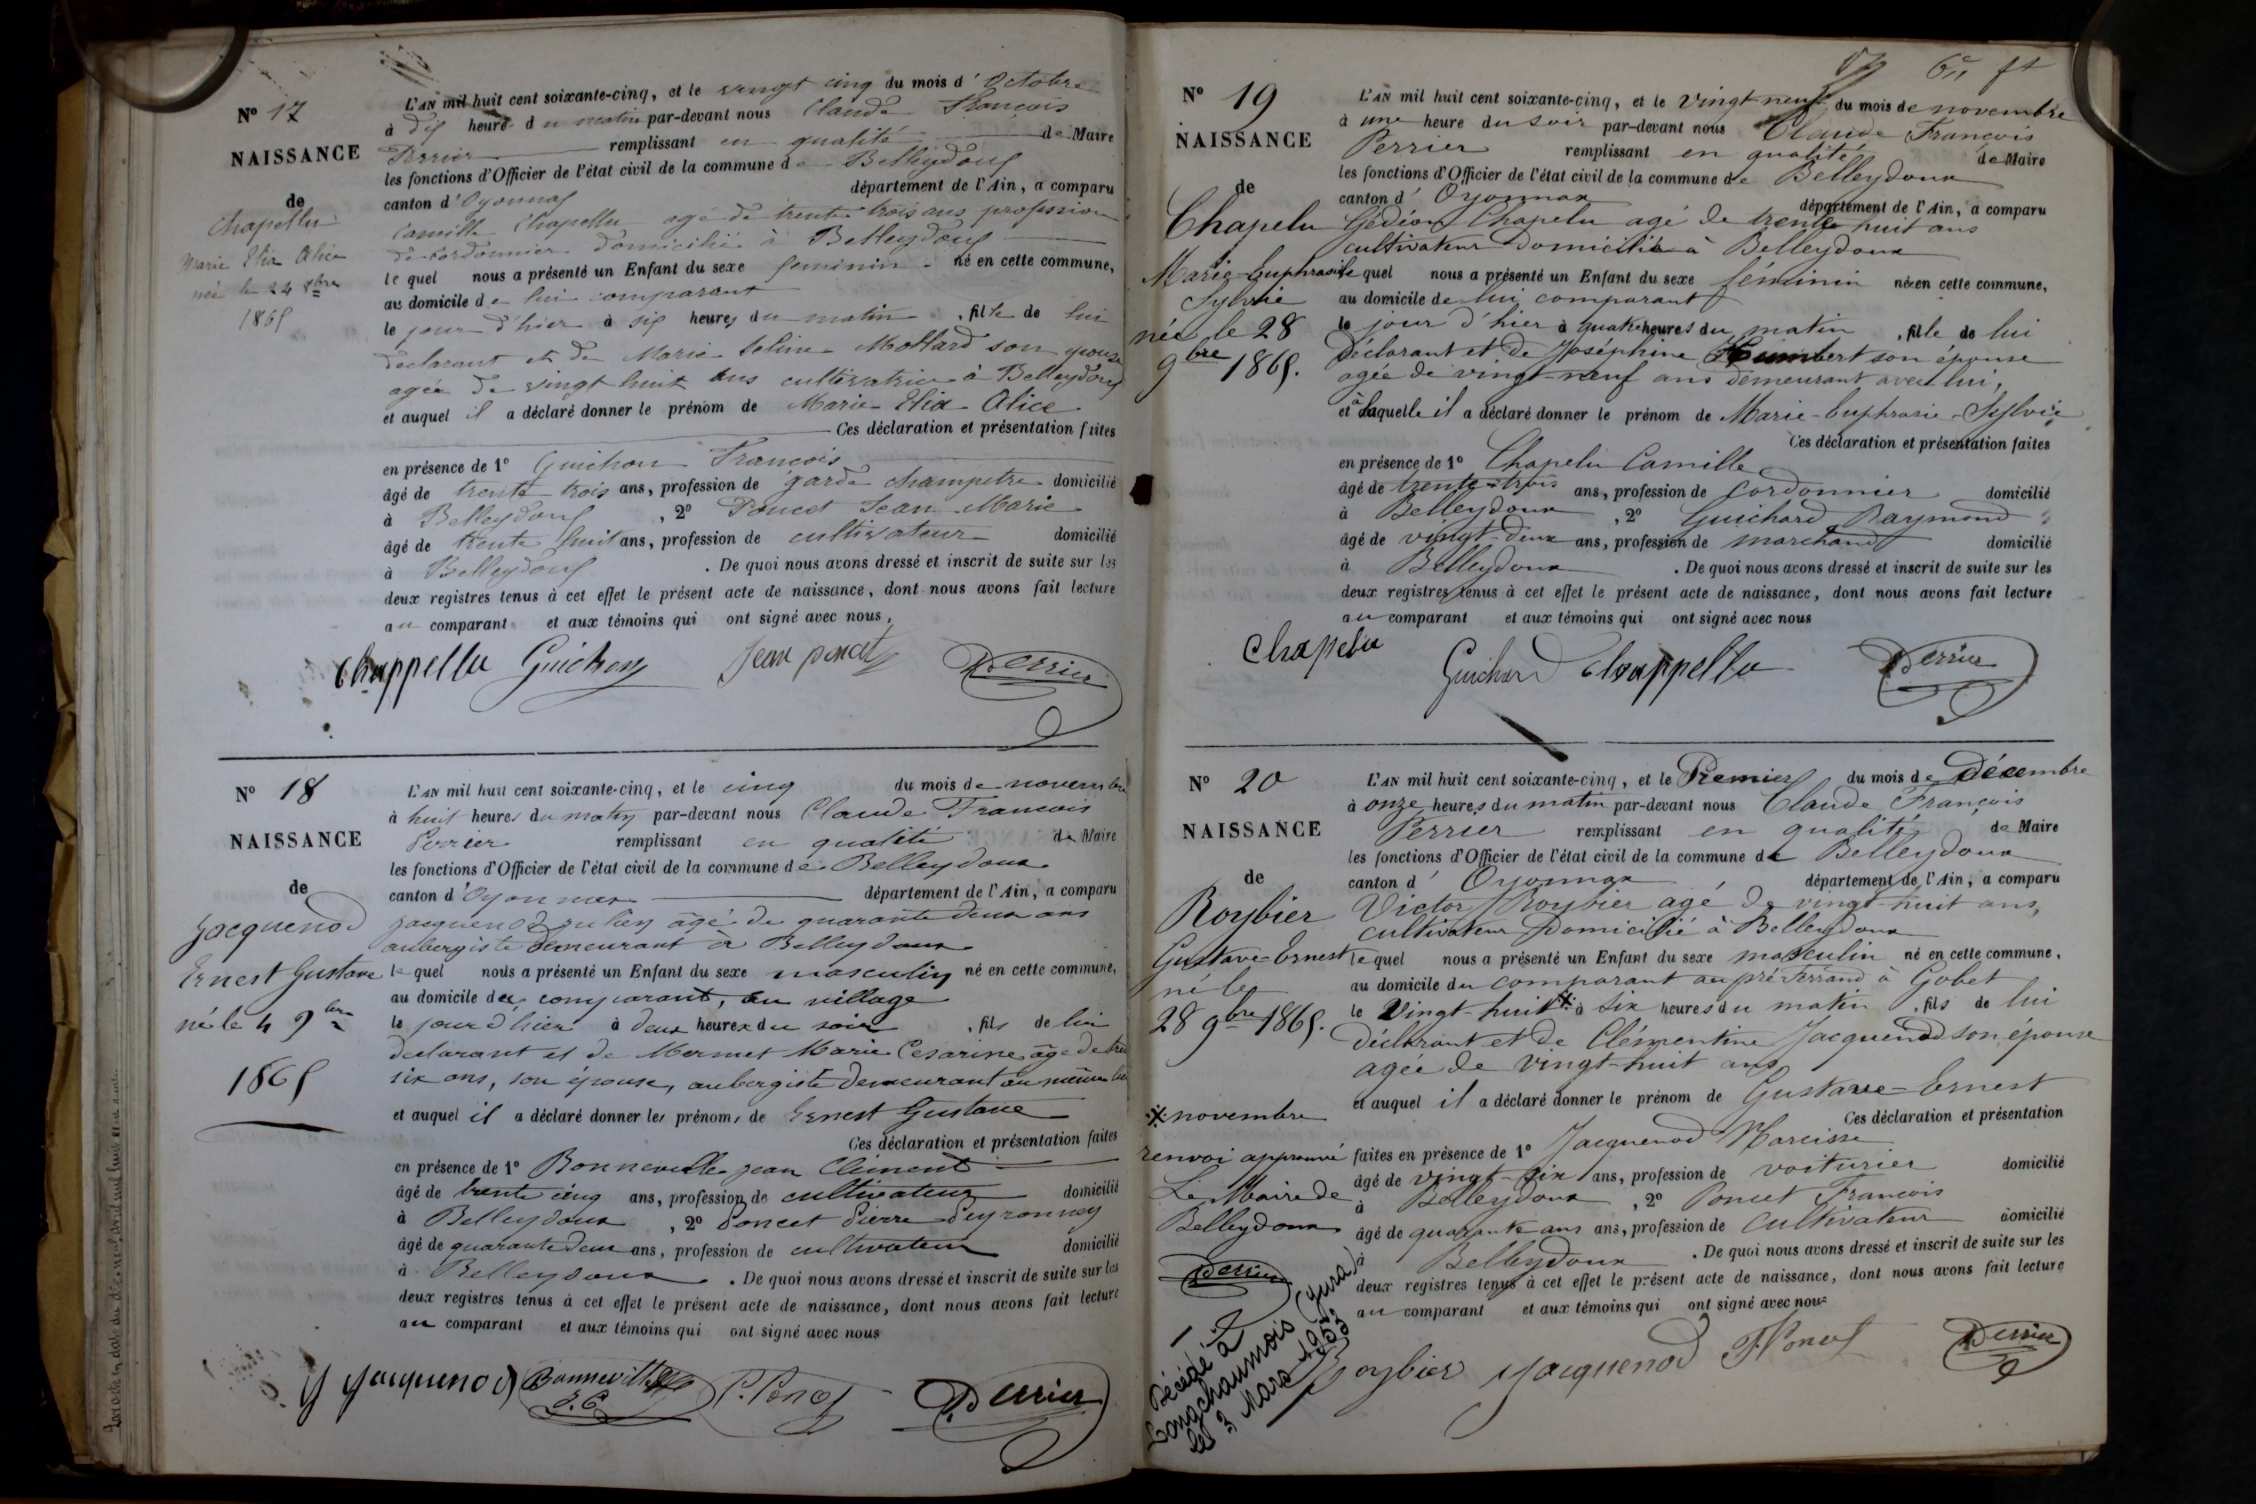 N° 17
NAISSANCE
de
Chapellu
Marie Elia Alice
née le 24 8bre
1865
L'AN mil huit cent soixante-cinq, et le vingt cinq du mois d'Octobre
à dix heure du matin par-devant nous Claude François
Perrier remplissant en qualité de Maire
les fonctions d'Officier de l'état civil de la commune de Belleydoux
canton d'Oyonnax département de l'Ain, a comparu
Camille Chapellu agé de trente trois ans profession
de cordonnier domicilié à Belleydoux
le quel nous a présenté un Enfant du sexe feminin né en cette commune,
au domicile de lui comparant
le jour d'hier à six heures du matin , fille de lui
declarant et de Marie Celine Mottard son epouse
agée de vingt huit ans cultivatrice à Belleydoux
et auquel il a déclaré donner le prénom de Marie Elia Alice
Ces déclaration et présentation faites
en présence de 1° Guichon François
âgé de trente trois ans, profession de garde champetre domicilié
à Belleydoux , 2° Poncet Jean Marie
âgé de trente huit ans, profession de cultivateur domicilié
à Belleydoux . De quoi nous avons dressé et inscrit de suite sur les
deux registres tenus à cet effet le présent acte de naissance, dont nous avons fait lecture
au comparant et aux témoins qui ont signé avec nous.
Chappellu Guichon Jean poncet Perrier
N° 18
NAISSANCE
de
Jacquenod
Ernest Gustave
né le 4 9bre
1865
L'AN mil huit cent soixante-cinq, et le cinq du mois de novembre
à huit heures du matin par-devant nous Claude Francois
Perrier remplissant en qualité de Maire
les fonctions d'Officier de l'état civil de la commune de Belleydoux
canton d'Oyonnax département de l'Ain, a comparu
Jacquenod Julien âgé de quarante deux ans
aubergiste demeurant à Belleydoux
le quel nous a présenté un Enfant du sexe masculin né en cette commune,
au domicile du comparant, au village
le jour d'hier à deux heures du soir , fils de lui
declarant et de Mermet Marie Cesarine âgé de
six ans, son épouse, aubergiste demeurant au même
et auquel il a déclaré donner les prénoms de Ernest Gustave
Ces déclaration et présentation faites
en présence de 1° Bonneville jean Clément
âgé de trente cinq ans, profession de cultivateur domicilié
à Belleydoux , 2° Poncet Pierre Peyronney
âgé de quarante deux ans, profession de cultivateur domicilié
à Belleydoux . De quoi nous avons dressé et inscrit de suite sur les
deux registres tenus à cet effet le présent acte de naissance, dont nous avons fait lecture
au comparant et aux témoins qui ont signé avec nous
J Jacquenod Bonneville J. C. P. Poncet Perrier
N° 19
NAISSANCE
de
Chapelu
Marie-Euphrasie
Sylvie
née le 28
9bre 1865.
L'AN mil huit cent soixante-cinq, et le vingt-neuf du mois de novembre
à une heure du soir par-devant nous Claude François
Perrier remplissant en qualité de Maire
les fonctions d'Officier de l'état civil de la commune de Belleydoux
canton d'Oyonnax département de l'Ain, a comparu
Gédéon Chapelu agé de trente huit ans
cultivateur Domicilié à Belleydoux
le quel nous a présenté un Enfant du sexe féminin née en cette commune,
au domicile de lui comparant
le jour d'hier à quatre heures du matin , fille de lui
Déclarant et de Joséphine Humbert son épouse
agée de vingt-neuf ans demeurant avec lui,
et à laquelle il a déclaré donner le prénom de Marie-Euphrasie-Sylvie
Ces déclaration et présentation faites
en présence de 1° Chapelu Camille
âgé de trente-trois ans, profession de cordonnier domicilié
à Belleydoux , 2° Guichard Raymond
âgé de vingt-deux ans, profession de marchand domicilié
à Belleydoux . De quoi nous avons dressé et inscrit de suite sur les
deux registres tenus à cet effet le présent acte de naissance, dont nous avons fait lecture
au comparant et aux témoins qui ont signé avec nous
Chapelu Guichard Chappellu Perrier
N° 20
NAISSANCE
de
Roybier
Gustave-Ernest
né le
28 9bre 1865.
※ novembre
renvoi approuvé
Le Maire de
Belleydoux
Perrier
Décédé à
Longchaumois (Jura)
le 3 Mars 1953
L'AN mil huit cent soixante-cinq, et le Premier du mois de Décembre
à onze heures du matin par-devant nous Claude François
Perrier remplissant en qualité de Maire
les fonctions d'Officier de l'état civil de la commune de Belleydoux
canton d'Oyonnax département de l'Ain, a comparu
Victor Roybier agé de vingt-huit ans,
cultivateur Domicilié à Belleydoux
le quel nous a présenté un Enfant du sexe masculin né en cette commune,
au domicile du comparant au pré Ferrand à Gobet
le Vingt-huit ※ à six heures du matin , fils de lui
Déclarant et de Clémentine Jacquenod son épouse
agée de vingt-huit ans
et auquel il a déclaré donner le prénom de Gustave-Ernest
Ces déclaration et présentation
faites en présence de 1° Jacquenod Narcisse
âgé de vingt-six ans, profession de voiturier domicilié
à Belleydoux , 2° Poncet François
âgé de quarante ans ans, profession de cultivateur domicilié
à Belleydoux . De quoi nous avons dressé et inscrit de suite sur les
deux registres tenus à cet effet le présent acte de naissance, dont nous avons fait lecture
au comparant et aux témoins qui ont signé avec nous
Roybier Jacquenod F Poncet Perrier